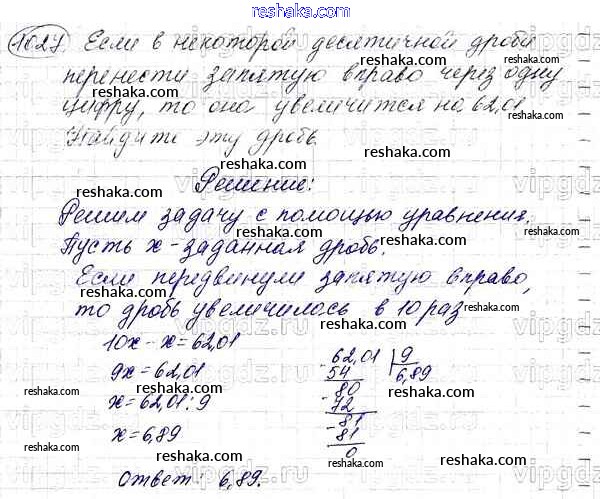 reshaka.com
1027 Если в некоторой десятичной дроби
перенести запятую вправо через одну
цифру, то она увеличится на 62,01.
Найдите эту дробь.
Решение:
Решим задачу с помощью уравнения.
Пусть x - заданная дробь.
Если передвинули запятую вправо,
то дробь увеличилось в 10 раз
10x - x = 62,01
9x = 62,01
x = 62,01 : 9
x = 6,89
62,01 9
54 6,89
80
72
81
81
0
Ответ: 6,89.